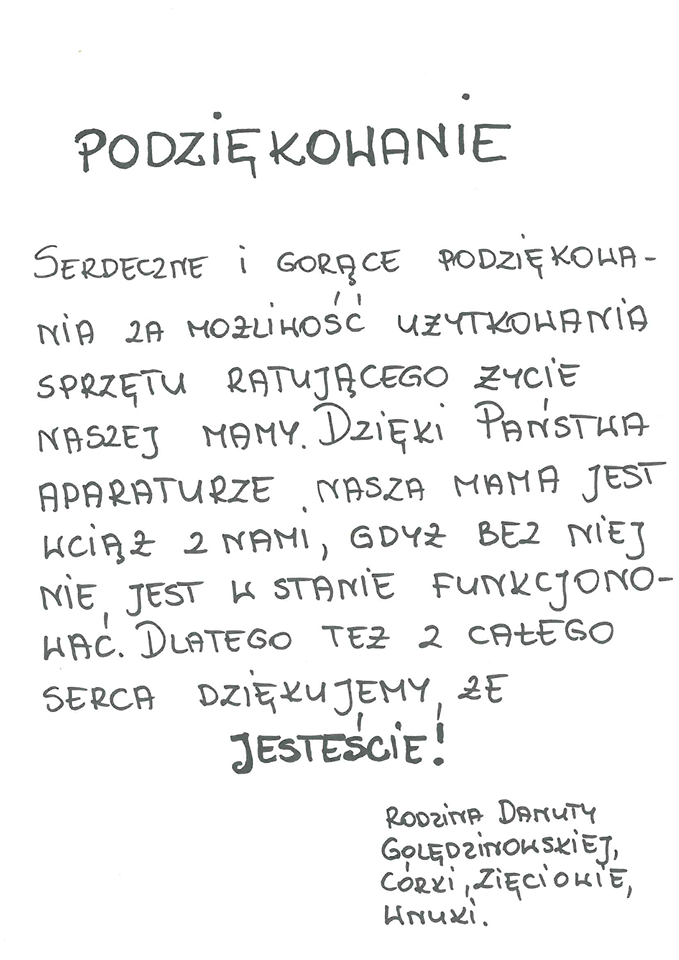 PODZIĘKOWANIE
SERDECZNE i GORĄCE PODZIĘKOWA-
NIA ZA MOŻLIWOŚĆ UŻYTKOWANIA
SPRZĘTU RATUJĄCEGO ŻYCIE
NASZEJ MAMY. DZIĘKI PAŃSTWA
APARATURZE NASZA MAMA JEST
WCIĄŻ Z NAMI, GDYŻ BEZ NIEJ
NIE JEST W STANIE FUNKCJONO-
WAĆ. DLATEGO TEŻ Z CAŁEGO
SERCA DZIĘKUJEMY, ŻE
JESTEŚCIE!
RODZINA DANUTY
GOLĘDZINOWSKIEJ,
CÓRKI, ZIĘCIOWIE,
WNUKI.